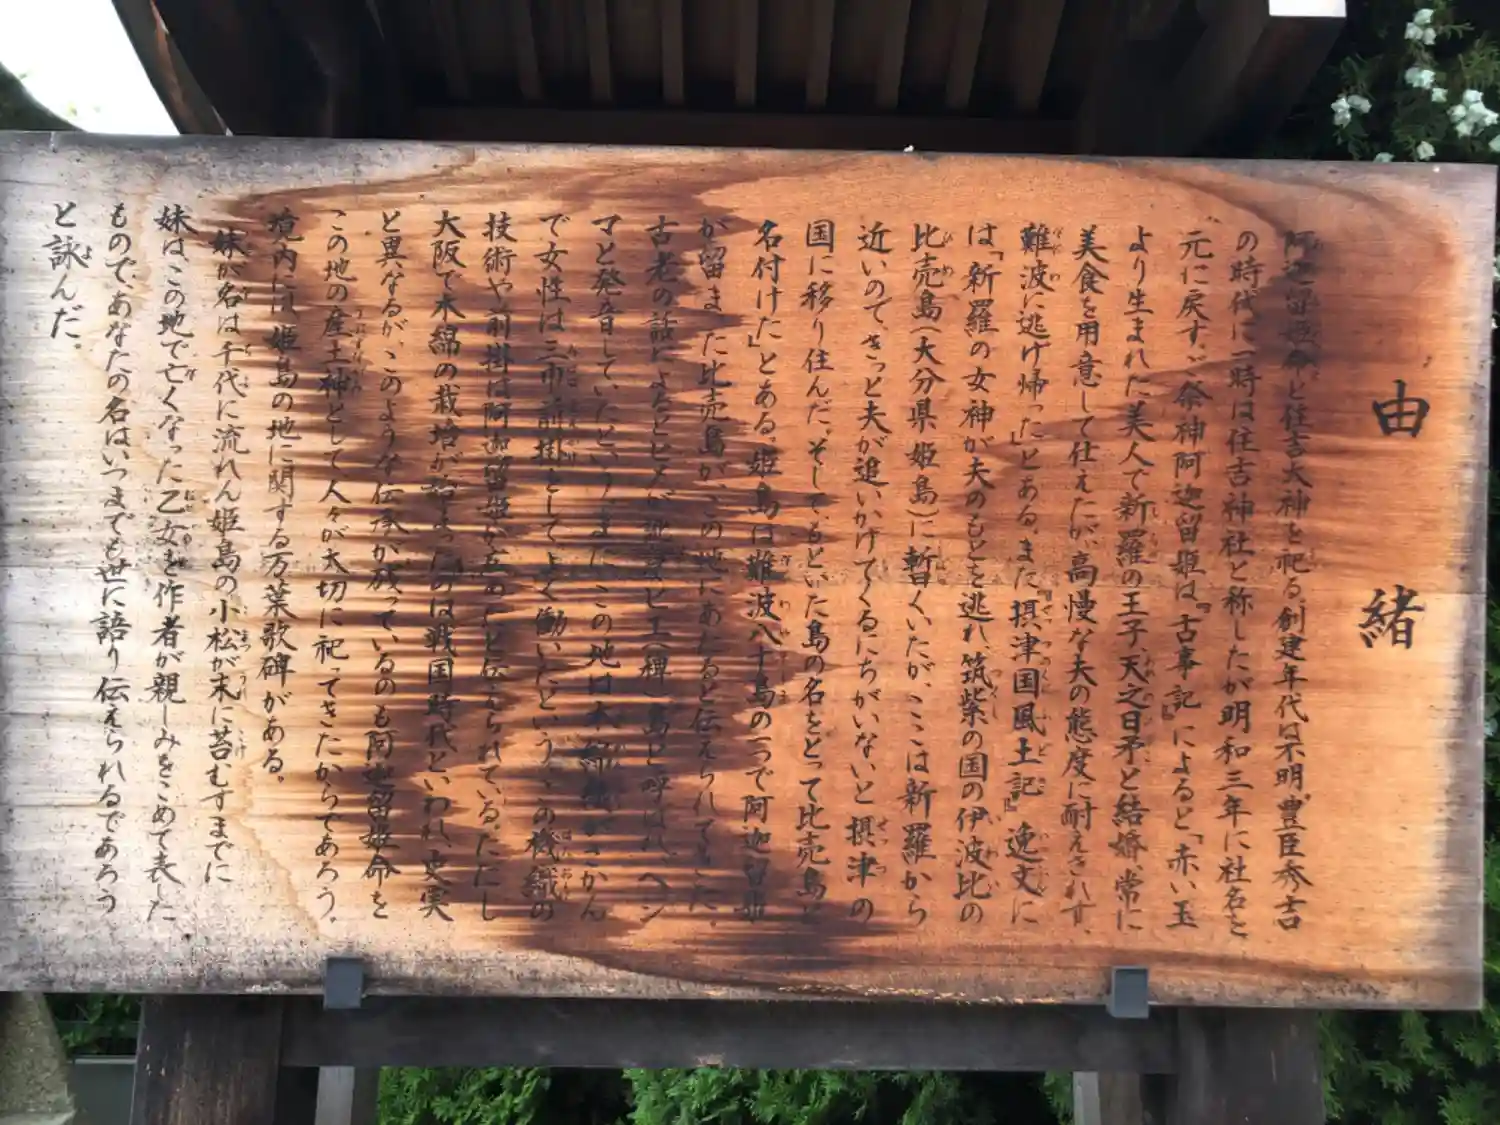 由緒
阿迦留姫命と住吉大神を祀る。創建年代は不明。豊臣秀吉
の時代に一時は住吉神社と称したが明和三年に社名を
元に戻す。ご祭神阿迦留姫は『古事記』によると「赤い玉
より生まれた美人で新羅の王子、天之日矛と結婚、常に
美食を用意して仕えたが、高慢な夫の態度に耐えきれず、
難波に逃げ帰った」とある。また『摂津国風土記』逸文に
は「新羅の女神が夫のもとを逃れ、筑紫の国の伊波比の
比売島(大分県姫島)に暫くいたが、ここは新羅から
近いので、きっと夫が追いかけてくるにちがいないと摂津の
国に移り住んだ。そして、もといた島の名をとって比売島と
名付けた」とある。姫島は難波八十島の一つで阿迦留姫
が留まった比売島が、この地にあたると伝えられてきた。
古老の話によるとヒメが
マと発音していたという。またこの地は木綿織がさかん
で女性は三巾前掛をしてよく働いたというその機織の
技術や前掛は阿迦留姫が広めたと伝えられている。ただし
大阪で木綿の栽培が始まったのは戦国時代といわれ、史実
と異なるが、このような伝承が残っているのも阿迦留姫命を
この地の産土神として人々が大切に祀ってきたからであろう。
境内には、姫島の地に関する万葉歌碑がある。
妹が名は千代に流れん姫島の小松が末に苔むすまでに
妹はこの地で亡くなった乙女を作者が親しみをこめて表した
もので、あなたの名はいつまでも世に語り伝えられるであろう
と詠んだ。